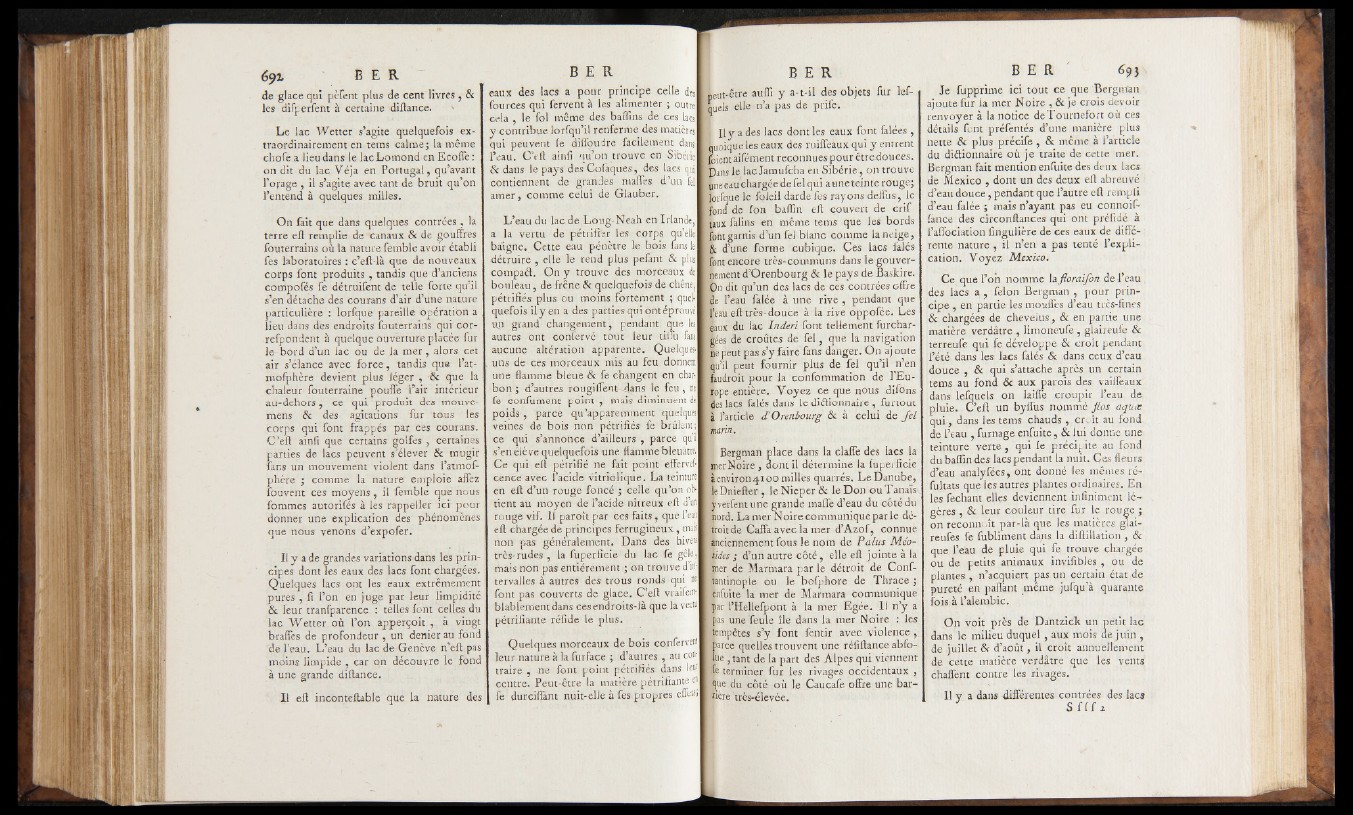 692 B E R
de glace qui pèſent plus de cent livres, &
les diſperſent à certaine diſtance.
Le lac Wetter s'agite quelquefois ex-
traordinairement en tems calme; la même
choſe a lieu dans le lac Lomond en Ecoſſe :
on dit du lac Véja en Portugal, qu'avant
l'orage, il s'agite avec tant de bruit qu'on
l'entend à quelques milles.
On ſait que dans quelques contrées, la
terre eſt remplie de canaux & de gouffres
ſouterrains où la nature ſemble avoir établi
ſes laboratoires : c'eſt-là que de nouveaux
corps ſont produits, tandis que d'anciens
compoſés ſe détruiſent de telle ſorte qu'il
s'en détache des courans d'air d'une nature
particulière : lorſque pareille opération a
lieu dans des endroits ſouterrains qui cor-
reſpondent à quelque ouverture placée ſur
le bord d'un lac ou de la mer, alors cet
air s'élance avec force, tandis que l'at-
moſphère devient plus léger, & que la
chaleur ſouterraine pouſſe l'air intérieur
au-dehors, ce qui produit des mouve-
mens & des agitations ſur tous les
corps qui ſont frappés par ces courans.
C'eſt ainſi que certains golfes, certaines
parties de lacs peuvent s'élever & mugir
ſans un mouvement violent dans l'atmoſ-
phère ; comme la nature emploie aſſez
ſouvent ces moyens, il ſemble que nous
ſommes autoriſés à les rappeller ici pour
donner une explication des phénomènes
que nous venons d'expoſer.
Il y a de grandes variations dans les prin-
cipes dont les eaux des lacs ſont chargées.
Quelques lacs ont les eaux extrêmement
pures, ſi l'on en juge par leur limpidité
& leur tranſparence : telles ſont celles du
lac Wetter où l'on apperçoit, à vingt
braſſes de profondeur, un denier au fond
de l'eau. L'eau du lac de Genève n'eſt pas
moins limpide, car on découvre le fond
à une grande diſtance.
Il eſt inconteſtable que la nature des
B E R
eaux des lacs a pour principe celle des
ſources qui ſervent à les alimenter ; outre
cela, le ſol même des baſſins de ces lacs
y contribue lorſqu'il renferme des matières
qui peuvent ſe diſſoudre facilement dans
l'eau. C'eſt ainſi qu'on trouve en Sibérie
& dans le pays des Coſaques, des lacs qui
contiennent de grandes maſſes d'un ſel
amer, comme celui de Glauber.
L'eau du lac de Loug-Neah en Irlande,
a la vertu de pétrifier les corps qu'elle
baigne. Cette eau pénètre le bois ſans le
détruire, elle le rend plus peſant & plus
compact. On y trouve des morceaux de
bouleau, de frêne & quelquefois de chêne,
pétrifiés plus ou moins fortement ; quel-
quefois il y en a des parties qui ont éprouvé
un grand changement, pendant que les
autres ont conſervé tout leur tiſſu ſans
aucune altération apparente. Quelques-
uns de ces morceaux mis au feu donnent
une flamme bleue & ſe changent en char-
bon ; d'autres rougiſſent dans le feu, ne
ſe conſument point, mais diminuent de
poids, parce qu'apparemment quelques
veines de bois non pétrifiés ſe brûlent ;
ce qui s'annonce d'ailleurs, parce qu'il
s'en élève quelquefois une flamme bleuatre.
Ce qui eſt pétrifié ne fait point efferveſ-
cence avec l'acide vitriolique. La teinture
en eſt d'un rouge foncé ; celle qu'on ob-
tient au moyen de l'acide nitreux eſt d'un
rouge vif. Il paroît par ces faits, que l'eau
eſt chargée de principes ferrugineux, mais
non pas généralement. Dans des hivers
très-rudes, la ſuperficie du lac ſe gèle,
mais non pas entièrement ; on trouve d'in-
tervalles à autres des trous ronds qui ne
ſont pas couverts de glace. C'eſt vraiſem-
blablement dans ces endroits-là que la vertu
pétrifiante réſide le plus.
Quelques morceaux de bois conſervent
leur nature à la ſurface ; d'autres, au con-
traire, ne ſont point pétrifiés dans leur
centre. Peut-être la matière pétrifiante en
ſe durciſſant nuit-elle à ſes propres effets ;
B E R
peut-être auſſi y a-t-il des objets ſur leſ-
quels elle n'a pas de priſe.
Il y a des lacs dont les eaux ſont ſalées,
quoique les eaux des ruiſſeaux qui y entrent
ſoient aiſément reconnues pour être douces.
Dans le lac Jamuſcha en Sibérie, on trouve
une eau chargée de ſel qui a une teinte rouge;
lorſque le ſoleil darde ſes rayons deſſus, le
fond de ſon baſſin eſt couvert de criſ-
taux ſalins en même tems que les bords
ſont garnis d'un ſel blanc comme la neige,
& d'une forme cubique. Ces lacs ſalés
ſont encore très-communs dans le gouver-
nement d'Orenbourg & le pays de Baskire.
On dit qu'un des lacs de ces contrées offre
de l'eau ſalée à une rive, pendant que
l'eau eſt très-douce à la rive oppoſée. Les
eaux du lac Inderi ſont tellement ſurchar-
gées de croûtes de ſel, que la navigation
ne peut pas s'y faire ſans danger. On ajoute
qu'il peut fournir plus de ſel qu'il n'en
faudroit pour la conſommation de l'Eu-
rope entière. Voyez ce que nous diſons
des lacs ſalés dans le dictionnaire, ſurtout
à l'article d'Orenbourg & à celui de ſel
marin.
Bergman place dans la claſſe des lacs la
mer Noire, dont il détermine la ſuperficie
à environ 4100 milles quarrés. Le Danube,
le Dnieſter, le Nieper & le Don ou Tanaïs
y verſent une grande maſſe d'eau du côté du
nord. La mer Noire communique par le dé-
troit de Caffa avec la mer d'Azof, connue
anciennement ſous le nom de Palus Méo-
tides ; d'un autre côté, elle eſt jointe à la
mer de Marmara par le détroit de Conſ-
tantinople ou le boſphore de Thrace ;
enſuite la mer de Marmara communique
par l'Helleſpont à la mer Egée. Il n'y a
pas une ſeule île dans la mer Noire : les
tempêtes s'y font ſentir avec violence,
parce quelles trouvent une réſiſtance abſo-
lue, tant de la part des Alpes qui viennent
ſe terminer ſur les rivages occidentaux,
que du côté où le Caucaſe offre une bar-
rière très-élevée.
B E R 693
Je ſupprime ici tout ce que Bergman
ajoute ſur la mer Noire, & je crois devoir
renvoyer à la notice de Tournefort où ces
détails ſont préſentés d'une manière plus
nette & plus préciſe, & même à l'article
du dictionnaire où je traite de cette mer.
Bergman fait mention enſuite des deux lacs
de Mexico, dont un des deux eſt abreuvé
d'eau douce, pendant que l'autre eſt rempli
d'eau ſalée ; mais n'ayant pas eu connoiſ-
ſance des circonſtances qui ont préſidé à
l'aſſociation ſingulière de ces eaux de diffé-
rente nature, il n'en a pas tenté l'expli-
cation. Voyez Mexico.
Ce que l'on nomme la floraiſon de l'eau
des lacs a, ſelon Bergman, pour prin-
cipe, en partie les mouſſes d'eau très-fines
& chargées de chevelus, & en partie une
matière verdâtre, limoneuſe, glaireuſe &
terreuſe qui ſe développe & croît pendant
l'été dans les lacs ſalés & dans ceux d'eau
douce, & qui s'attache après un certain
tems au fond & aux parois des vaiſſeaux
dans leſquels on laiſſe croupir l'eau de
pluie. C'eſt un byſſus nommé flos aquæ
qui, dans les tems chauds, croît au fond
de l'eau, ſurnage enſuite, & lui donne une
teinture verte, qui ſe précipite au fond
du baſſin des lacs pendant la nuit. Ces fleurs
d'eau analyſées, ont donné les mêmes ré-
ſultats que les autres plantes ordinaires. En
les ſéchant elles deviennent infiniment lé-
gères, & leur couleur tire ſur le rouge ;
on reconnoît par-là que les matières glai-
reuſes ſe ſubliment dans la diſtillation, &
que l'eau de pluie qui ſe trouve chargée
ou de petits animaux inviſibles, ou de
plantes, n'acquiert pas un certain état de
pureté en paſſant même juſqu'à quarante
fois à l'alembic.
On voit près de Dantzick un petit lac
dans le milieu duquel, aux mois de juin,
de juillet & d'août, il croît annuellement
de cette matière verdâtre que les vents
chaſſent contre les rivages.
Il y a dans différentes contrées des lacs
S ſ ſ ſ 2